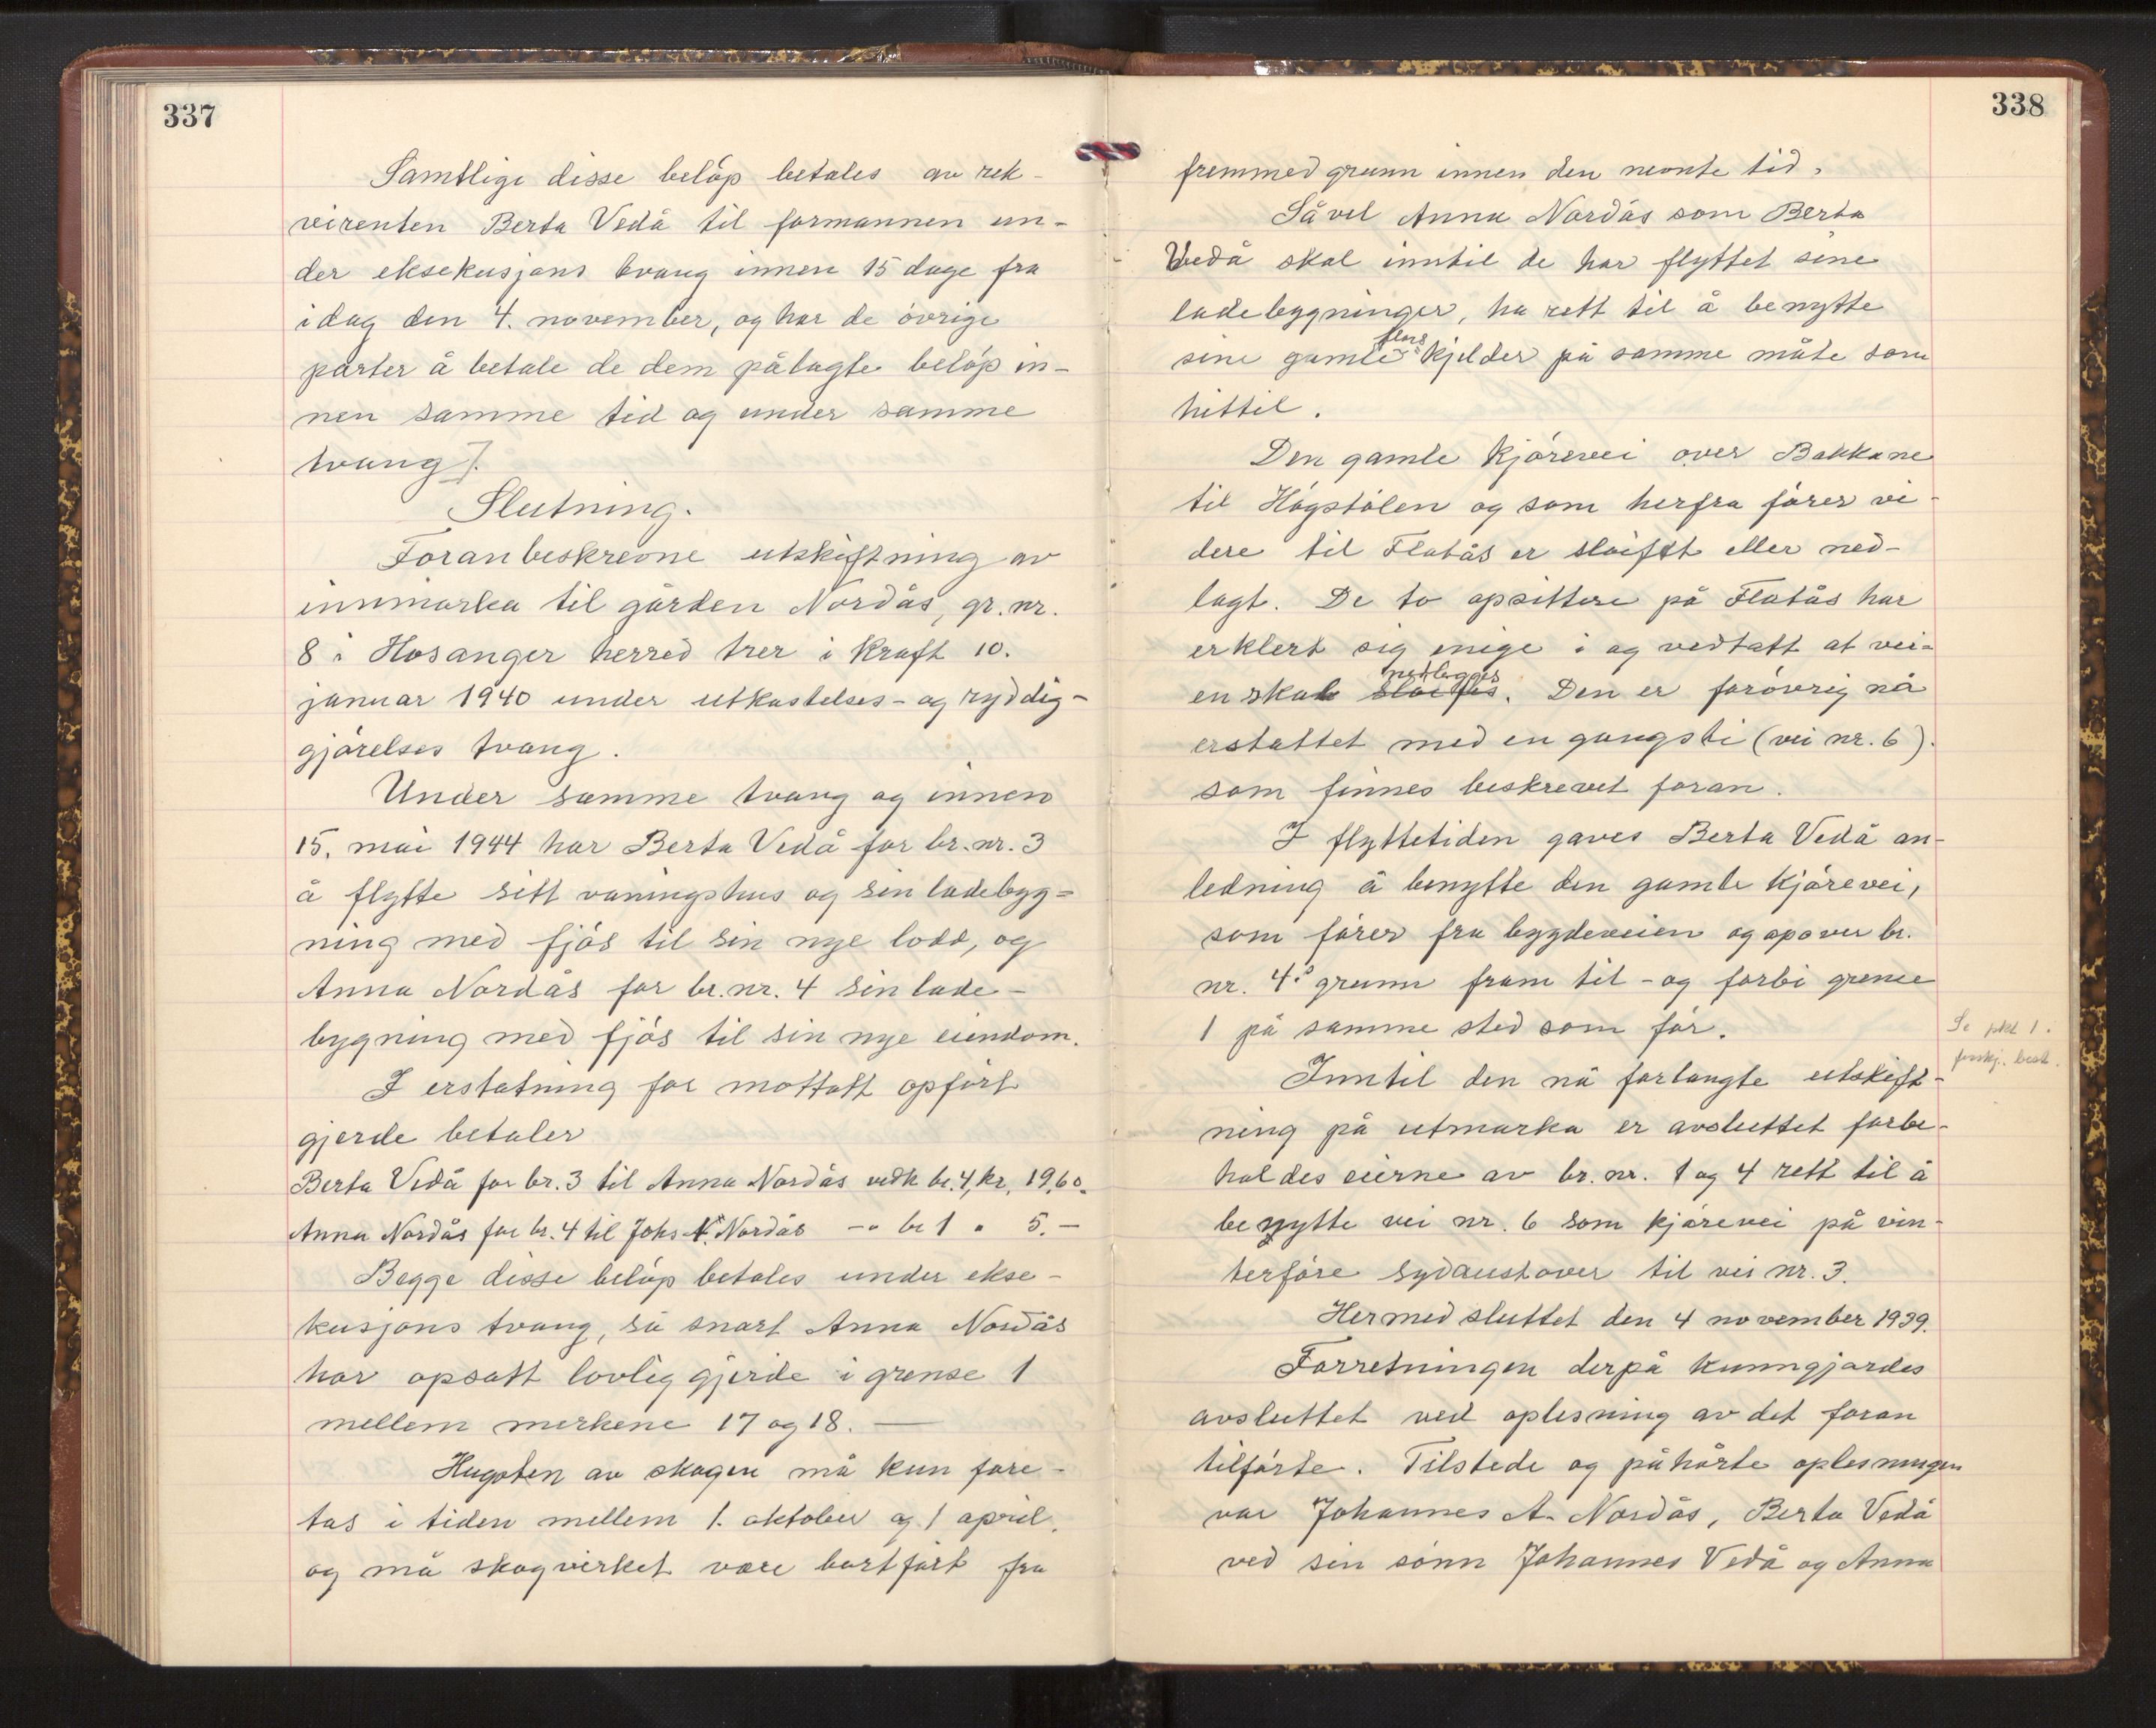 337
Samtlige disse beløp betales av rek-
virenten Berta Vedå til formannen un-
der eksekusjons tvang innen 15 dage fra
idag den 4. november, og har de øvrige
parter å betale de dem pålagte beløp in-
nen samme tid og under samme
tvang].
Slutning.
Foranbeskrevne utskiftning av
innmarka til gården Nordås, gr. nr.
8 i Hosanger herred trer i kraft 10.
januar 1940 under utkastelses- og ryddig-
gjørelses tvang.
Under samme tvang og innen
15. mai 1944 har Berta Vedå for br. nr. 3
å flytte sitt vaningshus og sin ladebyg-
ning med fjøs til sin nye lodd, og
Anna Nordås for br. nr. 4 sin lade-
bygning med fjøs til sin nye eiendom.
I erstatning for mottatt opført
gjerde betaler
Berta Vedå for br. 3 til Anna Nordås vedk br. 4, kr. 19,60.
Anna Nordås for br. 4 til Johs A. Nordås -" br 1 " 5.-
Begge disse beløp betales under ekse-
kusjons tvang, så snart Anna Nordås
har opsatt lovlig gjerde i grense 1
mellem merkene 17 og 18. —
Hugsten av skogen må kun fore-
tas i tiden mellem 1. oktober og 1 april,
og må skogvirket være bortført fra
338
fremmed grunn innen den nevnte tid.
Såvel Anna Nordås som Berta
Vedå skal inntil de har flyttet sine
ladebygninger, ha rett til å benytte
sine gamle fløs kjelder på samme måte som
hittil.
Den gamle kjørevei over Bakkane
til Høgstølen og som herfra fører vi-
dere til Flatås er sløifet eller ned-
lagt. De to opsittere på Flatås har
erklert sig enige i og vedtatt at vei-
en skal sløifes nedlegges. Den er forøvrig nå
erstattet med en gangsti (vei nr. 6).
som finnes beskrevet foran.
I flyttetiden gaves Berta Vedå an-
ledning å benytte den gamle kjørevei,
som fører fra bygdeveien og opover br.
nr. 4's grunn fram til - og forbi grense
1 på samme sted som før.
Se pkt 1.
forskj. best.
Inntil den nå forlangte utskift-
ning på utmarka er avsluttet forbe-
holdes eierne av br. nr. 1 og 4 rett til å
benytte vei nr. 6 som kjørevei på vin-
terføre sydaustover til vei nr. 3.
Hermed sluttet den 4 november 1939.
Forretningen derpå kunngjordes
avsluttet ved oplesning av det foran
tilførte. Tilstede og påhørte oplesningen
var Johannes A. Nordås, Berta Vedå
ved sin sønn Johannes Vedå og Anna